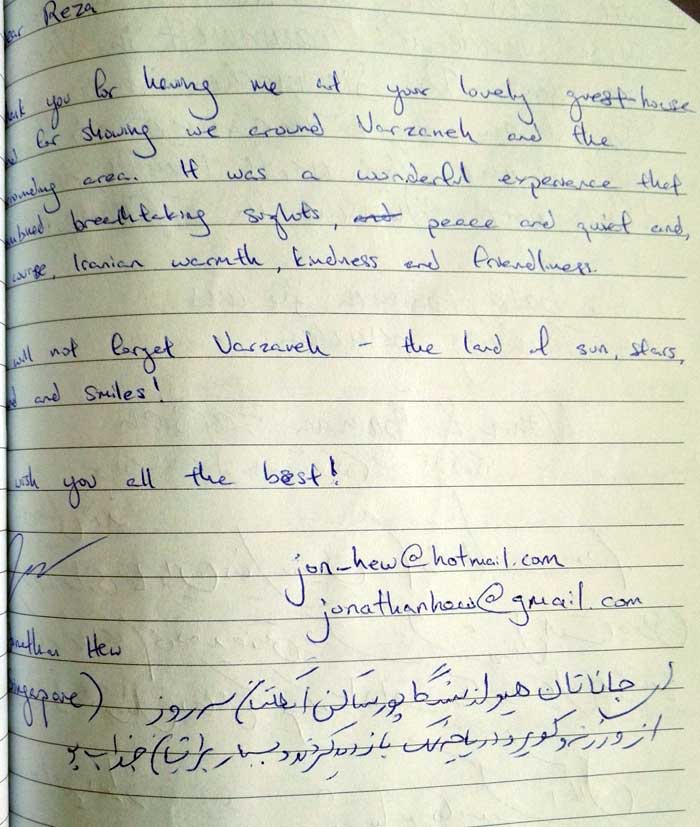 ear Reza
ank you for having me at your lovely guest-house
nd for showing me around Varzaneh and the
rounding area. It was a wonderful experience that
mbined breathtaking sights, and peace and quiet and,
course, Iranian warmth, kindness and friendliness.
will not forget Varzaneh – the land of sun, stars,
nd and smiles!
wish you all the best!
jon_hew@hotmail.com
jonathanhew@gmail.com
onathan Hew
ingapore)
جاناتان هیو از سنگاپور ساکن سه روز
از ورزنه و کویر و دریاچه نمک بازدید کردند و بسیار جذاب بو